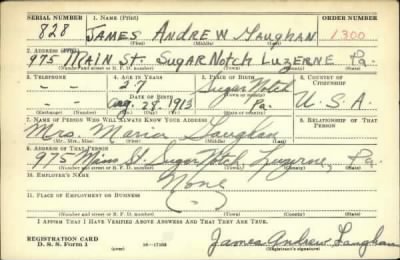 SERIAL NUMBER 1. NAME (Print) ORDER NUMBER
828 JAMES ANDREW Gaughan 1300
(First) (Middle) (Last)
2. ADDRESS (Print)
975 MAIN St. SUGAR NOTCH LUZERNE Pa.
(Number and street or R. F. D. number) (Town) (County) (State)
3. TELEPHONE 4. AGE IN YEARS 5. PLACE OF BIRTH 6. COUNTRY OF CITIZENSHIP
27 Sugar Notch
DATE OF BIRTH (Town or county)
Aug. 28, 1913 Pa. U.S.A.
(Exchange) (Number) (Mo.) (Day) (Yr.) (State or country)
7. NAME OF PERSON WHO WILL ALWAYS KNOW YOUR ADDRESS 8. RELATIONSHIP OF THAT PERSON
Mrs. Maria Gaughan
(Mr., Mrs., Miss) (First) (Middle) (Last)
9. ADDRESS OF THAT PERSON
975 Main St. Sugar Notch, Luzerne, Pa.
(Number and street or R. F. D. number) (Town) (County) (State)
10. EMPLOYER'S NAME
None
11. PLACE OF EMPLOYMENT OR BUSINESS
(Number and street or R. F. D. number) (Town) (County) (State)
I AFFIRM THAT I HAVE VERIFIED ABOVE ANSWERS AND THAT THEY ARE TRUE.
REGISTRATION CARD
D. S. S. Form 1 (over) James Andrew Gaughan
(Registrant's signature)